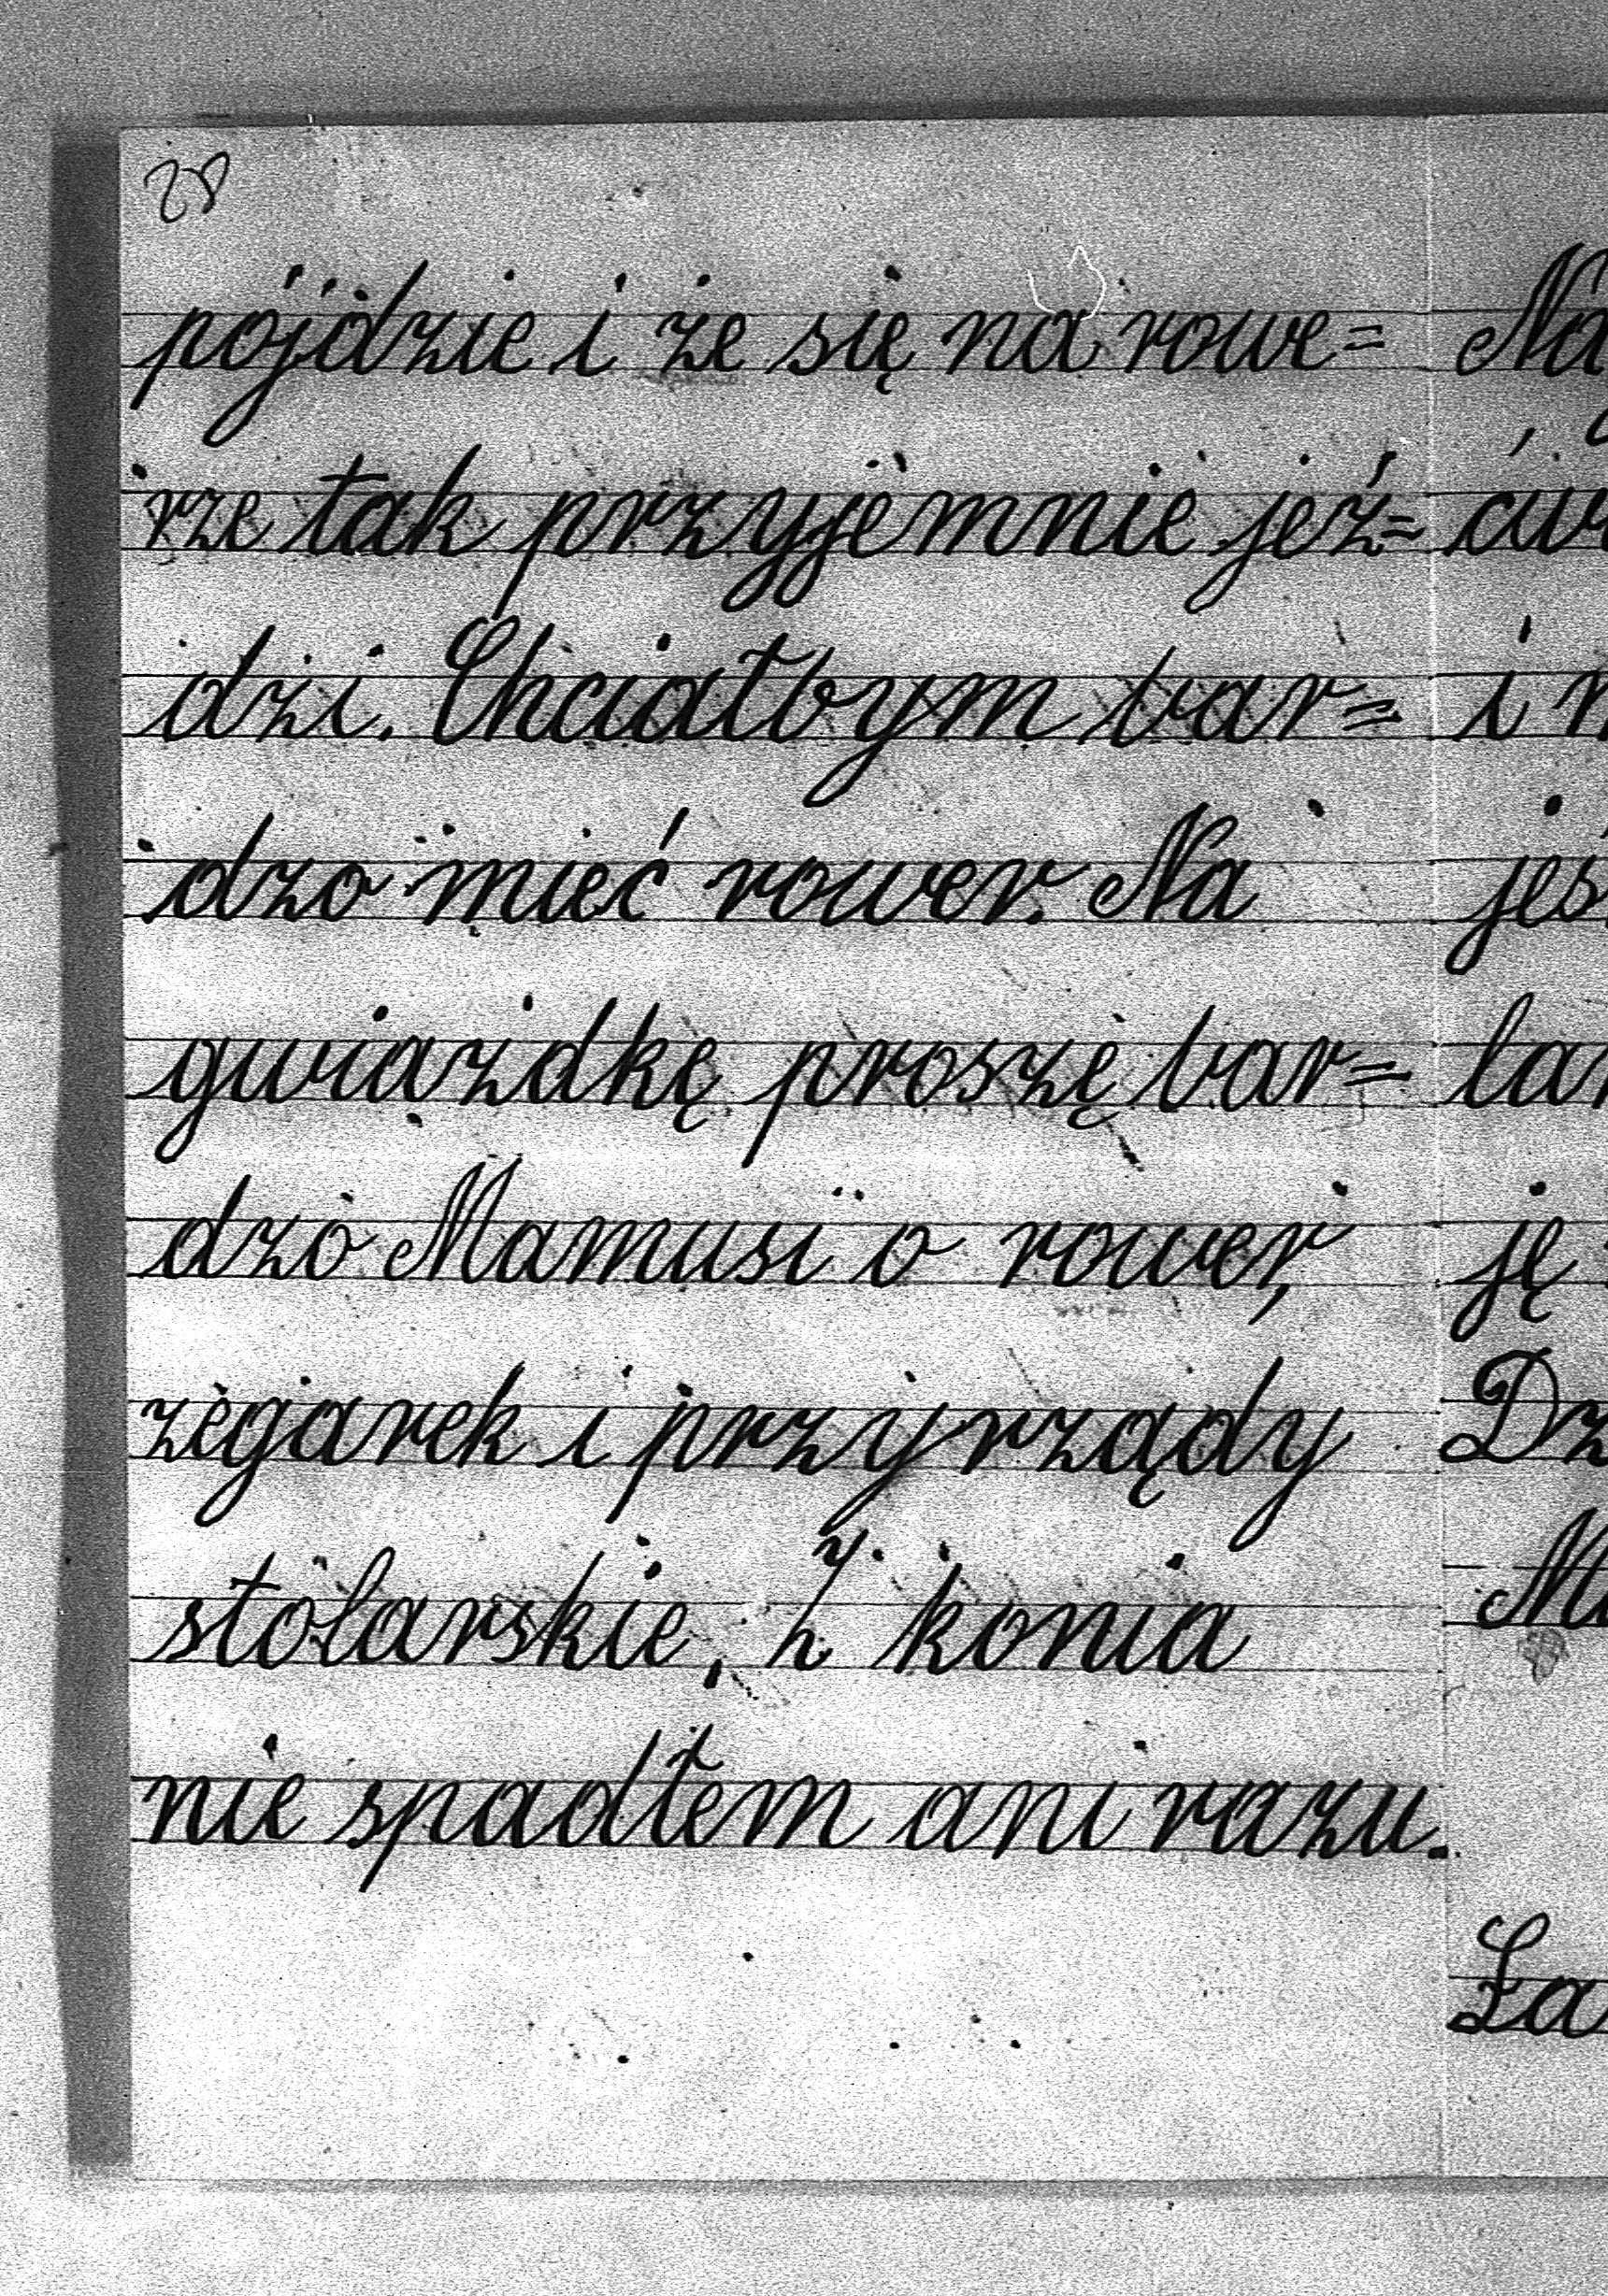 28
pójdzie i że się na rowe=
rze tak przyjemnie jeź=
dzi. Chciałbym bar=
dzo mieć rower. Na
gwiazdkę proszę bar=
dzo Mamusi o rower,
zegarek i przyrządy
stolarskie. Z konia
nie spadłem ani razu.